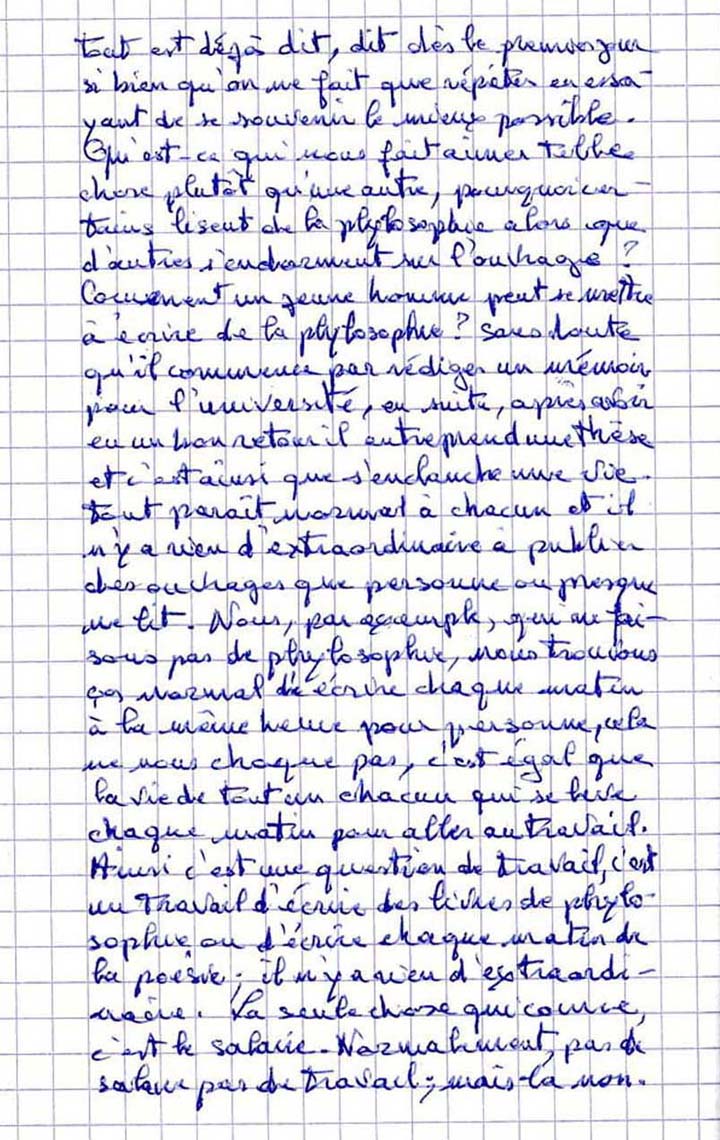 tout est déjà dit, dit dès le premier jour
si bien qu'on ne fait que répéter en essa-
yant de se souvenir le mieux possible.
Qu'est-ce qui nous fait aimer telle
chose plutôt qu'une autre, pourquoi cer-
tains lisent de la phylosophie alors que
d'autres s'endorment sur l'ouvrage ?
Comment un jeune homme peut se mettre
à écrire de la phylosophie ? Sans doute
qu'il commence par rédiger un mémoir
pour l'université, en suite, après avoir
eu un bon retour il entreprend une thèse
et c'est ainsi que s'enclanche une vie.
tout paraît normal à chacun et il
n'y a rien d'extraordinaire à publier
des ouvrages que personne ou presque
ne lit. Nous, par exemple, qui ne fai-
sons pas de phylosophie, nous trouvons
ça normal d'écrire chaque matin
à la même heure pour personne, cela
ne nous choque pas, c'est égal que
la vie de tout un chacun qui se lève
chaque matin pour aller au travail.
Ainsi c'est une question de travail, c'est
un travail d'écrire des livres de phylo-
sophie ou d'écrire chaque matin de
la poésie ; il n'y a rien d'extraordi-
naire. La seule chose qui coince,
c'est le salaire. Normalement, pas de
salaire pas de travail ; mais là non.